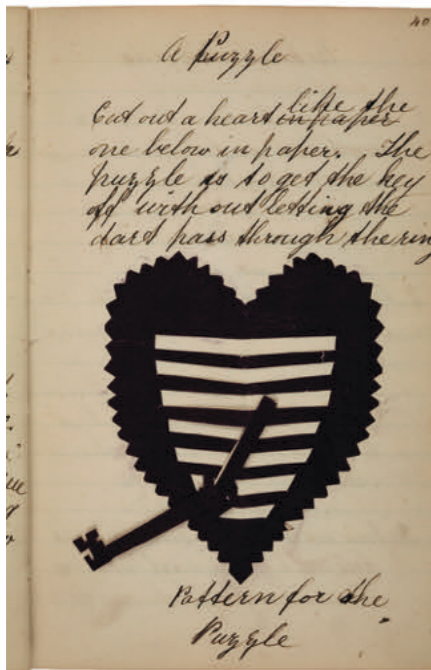 40
A Puzzle
Cut out a heart like the in paper
one below in paper. The
puzzle is to get the key
off with out letting the
dart pass through the ring
Pattern for the
Puzzle